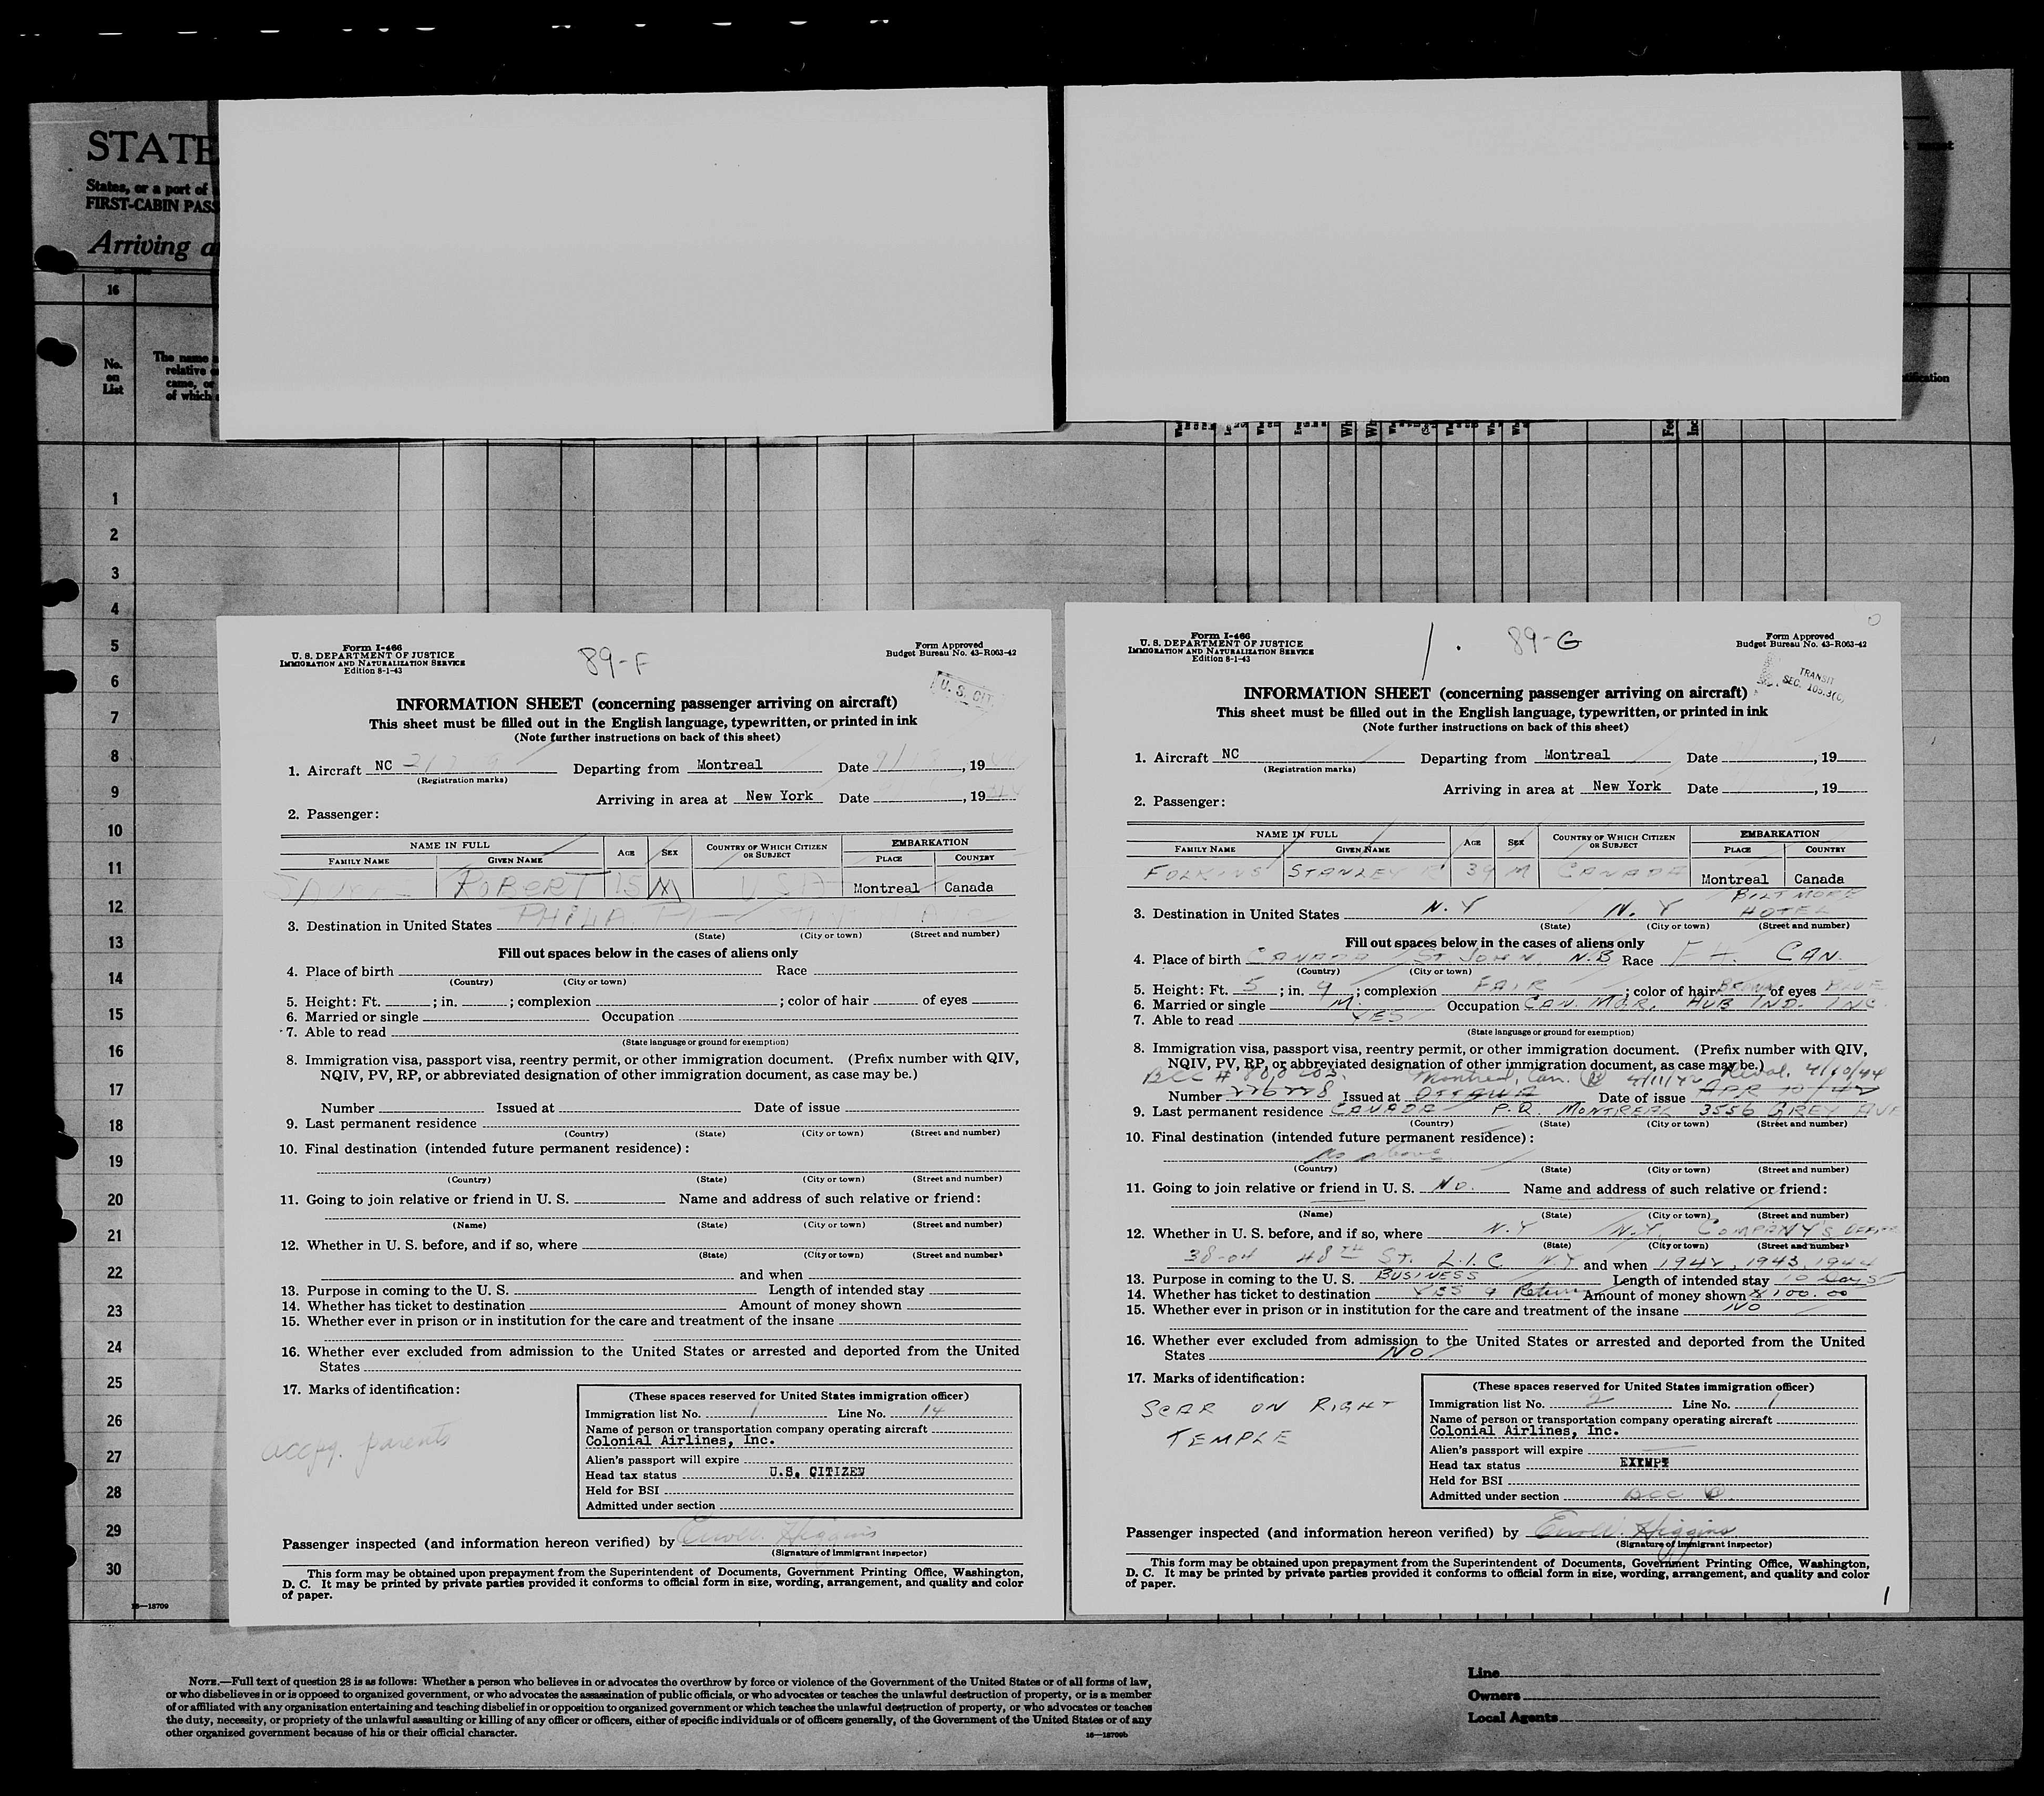 STATE
States, or a port of
FIRST-CABIN PASS
Arriving a
16
No.
on
List
The name
relative
came, or
of which
1
2
3
4
5
6
7
8
9
10
11
12
13
14
15
16
17
18
19
20
21
22
23
24
25
26
27
28
29
30
16—18709
Form I-466
U. S. DEPARTMENT OF JUSTICE
IMMIGRATION AND NATURALIZATION SERVICE
Edition 8-1-43
89-F
Form Approved
Budget Bureau No. 43-R063-42
U. S. CIT.
INFORMATION SHEET (concerning passenger arriving on aircraft)
This sheet must be filled out in the English language, typewritten, or printed in ink
(Note further instructions on back of this sheet)
1. Aircraft NC Departing from Montreal Date , 19
(Registration marks)
Arriving in area at New York Date , 19
2. Passenger:
NAME IN FULL AGE SEX COUNTRY OF WHICH CITIZEN OR SUBJECT EMBARKATION
FAMILY NAME GIVEN NAME PLACE COUNTRY
ROBERT 15 M USA Montreal Canada
3. Destination in United States PHILA
(State) (City or town) (Street and number)
Fill out spaces below in the cases of aliens only
4. Place of birth Race
(Country) (City or town)
5. Height: Ft. ; in. ; complexion ; color of hair of eyes
6. Married or single Occupation
7. Able to read
(State language or ground for exemption)
8. Immigration visa, passport visa, reentry permit, or other immigration document. (Prefix number with QIV,
NQIV, PV, RP, or abbreviated designation of other immigration document, as case may be.)
Number Issued at Date of issue
9. Last permanent residence
(Country) (State) (City or town) (Street and number)
10. Final destination (intended future permanent residence):
(Country) (State) (City or town) (Street and number)
11. Going to join relative or friend in U. S. Name and address of such relative or friend:
(Name) (State) (City or town) (Street and number)
12. Whether in U. S. before, and if so, where
(State) (City or town) (Street and number)
and when
13. Purpose in coming to the U. S. Length of intended stay
14. Whether has ticket to destination Amount of money shown
15. Whether ever in prison or in institution for the care and treatment of the insane
16. Whether ever excluded from admission to the United States or arrested and deported from the United
States
17. Marks of identification:
accpg. parents
(These spaces reserved for United States immigration officer)
Immigration list No. 1 Line No. 14
Name of person or transportation company operating aircraft
Colonial Airlines, Inc.
Alien's passport will expire
Head tax status U.S. CITIZEN
Held for BSI
Admitted under section
Passenger inspected (and information hereon verified) by Higgins
(Signature of immigrant inspector)
This form may be obtained upon prepayment from the Superintendent of Documents, Government Printing Office, Washington,
D. C. It may be printed by private parties provided it conforms to official form in size, wording, arrangement, and quality and color
of paper.
Form I-466
U. S. DEPARTMENT OF JUSTICE
IMMIGRATION AND NATURALIZATION SERVICE
Edition 8-1-43
89-G
Form Approved
Budget Bureau No. 43-R063-42
TRANSIT
SEC. 105.3(C)
INFORMATION SHEET (concerning passenger arriving on aircraft)
This sheet must be filled out in the English language, typewritten, or printed in ink
(Note further instructions on back of this sheet)
1. Aircraft NC Departing from Montreal Date , 19
(Registration marks)
Arriving in area at New York Date , 19
2. Passenger:
NAME IN FULL AGE SEX COUNTRY OF WHICH CITIZEN OR SUBJECT EMBARKATION
FAMILY NAME GIVEN NAME PLACE COUNTRY
FOLKINS STANLEY R 39 M CANADA Montreal Canada
BILTMORE
3. Destination in United States N.Y N.Y HOTEL
(State) (City or town) (Street and number)
Fill out spaces below in the cases of aliens only
4. Place of birth CANADA ST JOHN, N.B Race CAN.
(Country) (City or town)
5. Height: Ft. 5 ; in. 9 ; complexion FAIR ; color of hair BROWN of eyes BLUE
6. Married or single M. Occupation CAN. MGR. HUB IND. INC
7. Able to read YES
(State language or ground for exemption)
8. Immigration visa, passport visa, reentry permit, or other immigration document. (Prefix number with QIV,
NQIV, PV, RP, or abbreviated designation of other immigration document, as case may be.)
BCC # Montreal, Can. 4/11/42 4/10/44
Number 226228 Issued at OTTAWA Date of issue APR 10/42
9. Last permanent residence CANADA P.Q. MONTREAL 3556 GREY AVE
(Country) (State) (City or town) (Street and number)
10. Final destination (intended future permanent residence):
As above
(Country) (State) (City or town) (Street and number)
11. Going to join relative or friend in U. S. No. Name and address of such relative or friend:
(Name) (State) (City or town) (Street and number)
12. Whether in U. S. before, and if so, where N.Y N.Y. COMPANY'S
(State) (City or town) (Street and number)
38-04 48TH ST. L.I.C N.Y. and when 1942, 1943, 1944
13. Purpose in coming to the U. S. BUSINESS Length of intended stay 10 Days
14. Whether has ticket to destination YES & Return Amount of money shown $100.00
15. Whether ever in prison or in institution for the care and treatment of the insane NO
16. Whether ever excluded from admission to the United States or arrested and deported from the United
States NO
17. Marks of identification:
SCAR ON RIGHT
TEMPLE
(These spaces reserved for United States immigration officer)
Immigration list No. 2 Line No. 1
Name of person or transportation company operating aircraft
Colonial Airlines, Inc.
Alien's passport will expire
Head tax status EXEMPT
Held for BSI
Admitted under section BCC
Passenger inspected (and information hereon verified) by Higgins
(Signature of immigrant inspector)
This form may be obtained upon prepayment from the Superintendent of Documents, Government Printing Office, Washington,
D. C. It may be printed by private parties provided it conforms to official form in size, wording, arrangement, and quality and color
of paper.
1
NOTE.—Full text of question 28 is as follows: Whether a person who believes in or advocates the overthrow by force or violence of the Government of the United States or of all forms of law,
or who disbelieves in or is opposed to organized government, or who advocates the assassination of public officials, or who advocates or teaches the unlawful destruction of property, or is a member
of or affiliated with any organization entertaining and teaching disbelief in or opposition to organized government or which teaches the unlawful destruction of property, or who advocates or teaches
the duty, necessity, or propriety of the unlawful assaulting or killing of any officer or officers, either of specific individuals or of officers generally, of the Government of the United States or of any
other organized government because of his or their official character.
16—18709b
Line
Owners
Local Agents